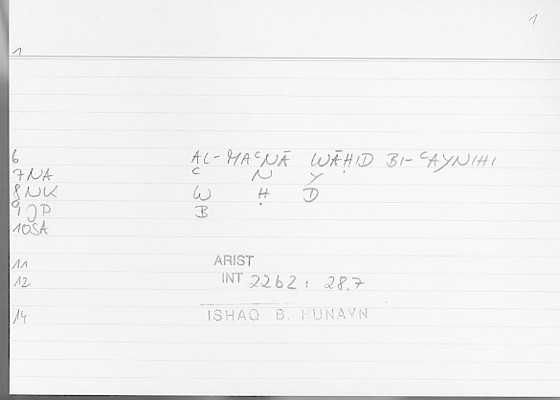 1
1
6 AL-MAʿNĀ WĀḤID BI-ʿAYNIHI
7 NA ʿ N Y
8 NK W Ḥ D
9 JP B
10 SA
11 ARIST
12 INT 22b2; 28.7
14 ISHAQ B. HUNAYN